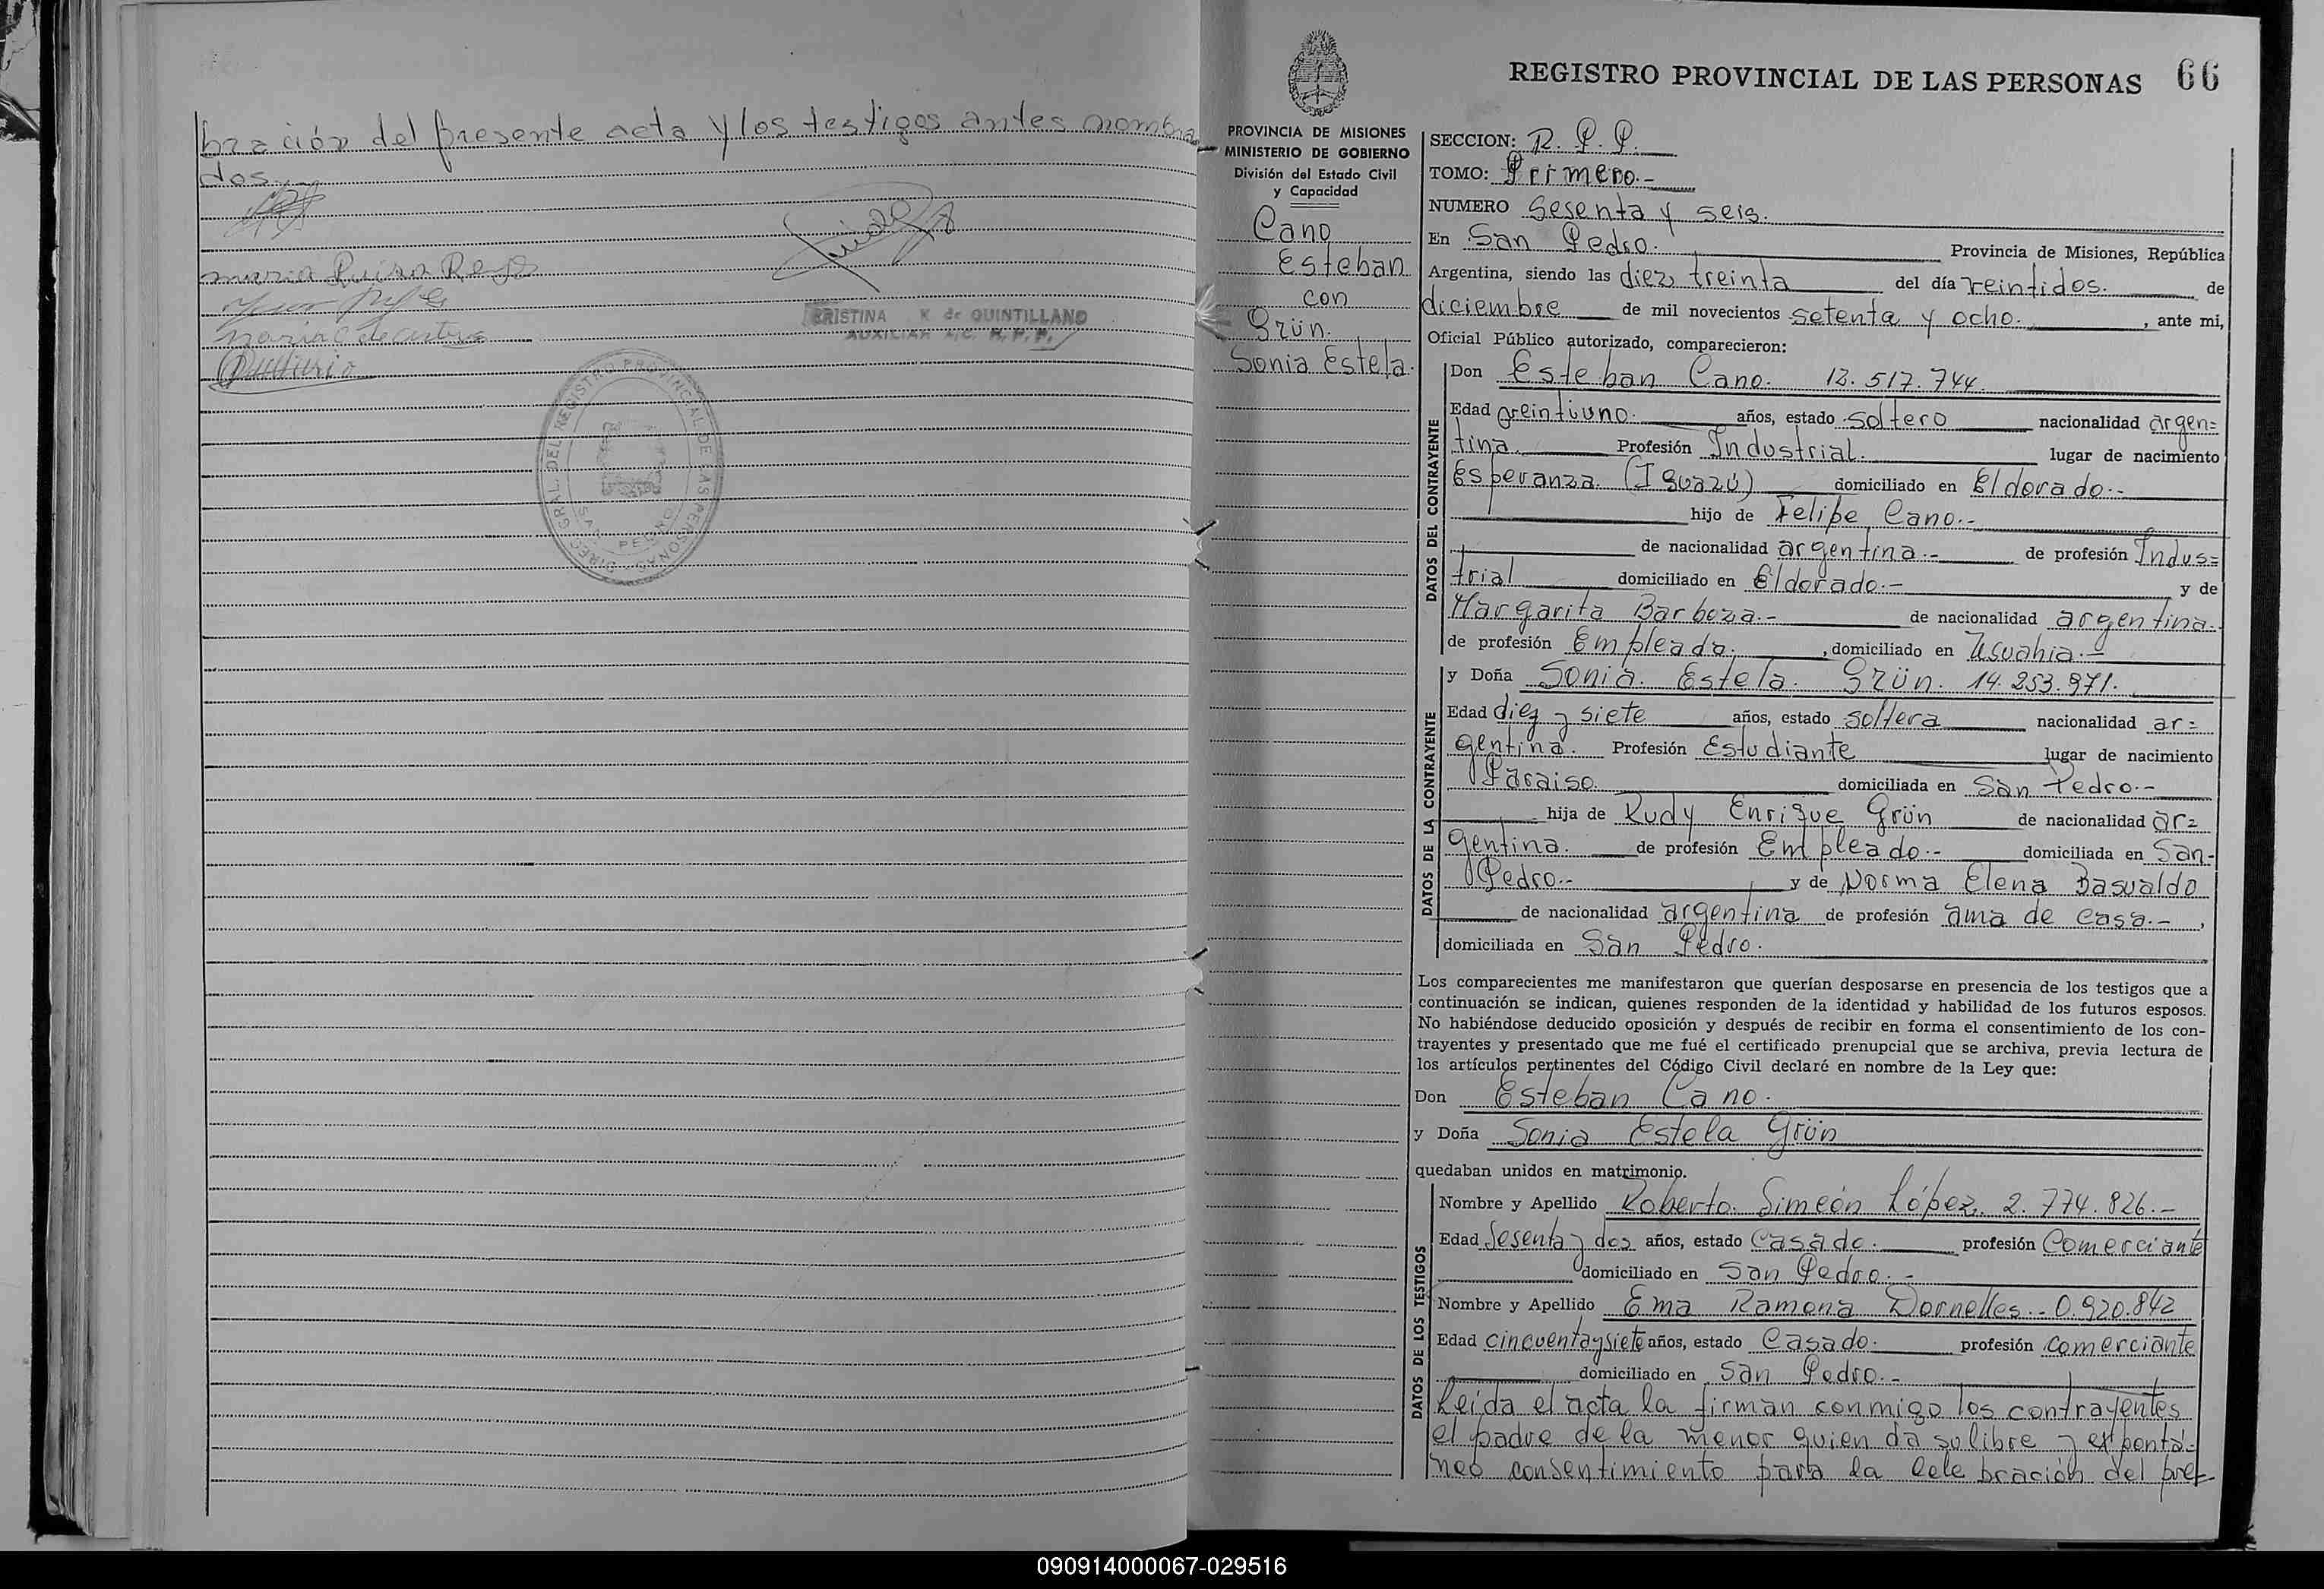 bración del presente acta y los testigos antes nombra
dos.
CRISTINA K de QUINTILLANO
AUXILIAR A/C. R.P.P.
DIREC. GRAL. DEL REGISTRO PROVINCIAL DE LAS PERSONAS
SAN PEDRO
REGISTRO PROVINCIAL DE LAS PERSONAS 66
PROVINCIA DE MISIONES
MINISTERIO DE GOBIERNO
División del Estado Civil
y Capacidad
Cano
Esteban
con
Grün.
Sonia Estela.
SECCION: R. P. P.
TOMO: Primero.-
NUMERO Sesenta y seis.
En San Pedro. Provincia de Misiones, República
Argentina, siendo las diez treinta del día veintidos. de
diciembre de mil novecientos setenta y ocho. , ante mi,
Oficial Público autorizado, comparecieron:
DATOS DEL CONTRAYENTE
Don Esteban Cano. 12.517.744.
Edad veintiuno. años, estado soltero nacionalidad argen=
tina. Profesión Industrial. lugar de nacimiento
Esperanza (Iguazú) domiciliado en Eldorado.-
hijo de Felipe Cano.-
de nacionalidad argentina.- de profesión Indus=
trial domiciliado en Eldorado.- y de
Margarita Barboza.- de nacionalidad argentina.
de profesión Empleada. , domiciliado en Usuahia.-
DATOS DE LA CONTRAYENTE
y Doña Sonia. Estela. Grün. 14.253.971.
Edad diez y siete años, estado soltera nacionalidad ar=
gentina. Profesión Estudiante lugar de nacimiento
Paraiso. domiciliada en San Pedro.-
hija de Rudy Enrique Grün de nacionalidad ar=
gentina. de profesión Empleado.- domiciliada en San-
Pedro.- y de Norma Elena Basualdo
de nacionalidad argentina de profesión ama de casa.- ,
domiciliada en San Pedro.
Los comparecientes me manifestaron que querían desposarse en presencia de los testigos que a
continuación se indican, quienes responden de la identidad y habilidad de los futuros esposos.
No habiéndose deducido oposición y después de recibir en forma el consentimiento de los con-
trayentes y presentado que me fué el certificado prenupcial que se archiva, previa lectura de
los artículos pertinentes del Código Civil declaré en nombre de la Ley que:
Don Esteban Cano.
y Doña Sonia Estela Grün
quedaban unidos en matrimonio.
DATOS DE LOS TESTIGOS
Nombre y Apellido Roberto. Simeón López. 2.774.826.-
Edad Sesenta y dos años, estado Casado. profesión Comerciante
domiciliado en San Pedro.-
Nombre y Apellido Ema Ramona Dornelles.- 0.920.842
Edad cincuenta y siete años, estado Casado. profesión comerciante
domiciliado en San Pedro.-
Leida el acta la firman conmigo los contrayentes
el padre de la menor quien da su libre y espontá-
neo consentimiento para la cele bración del pre-
090914000067-029516